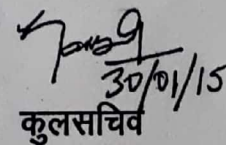 30/01/15
कुलसचिव